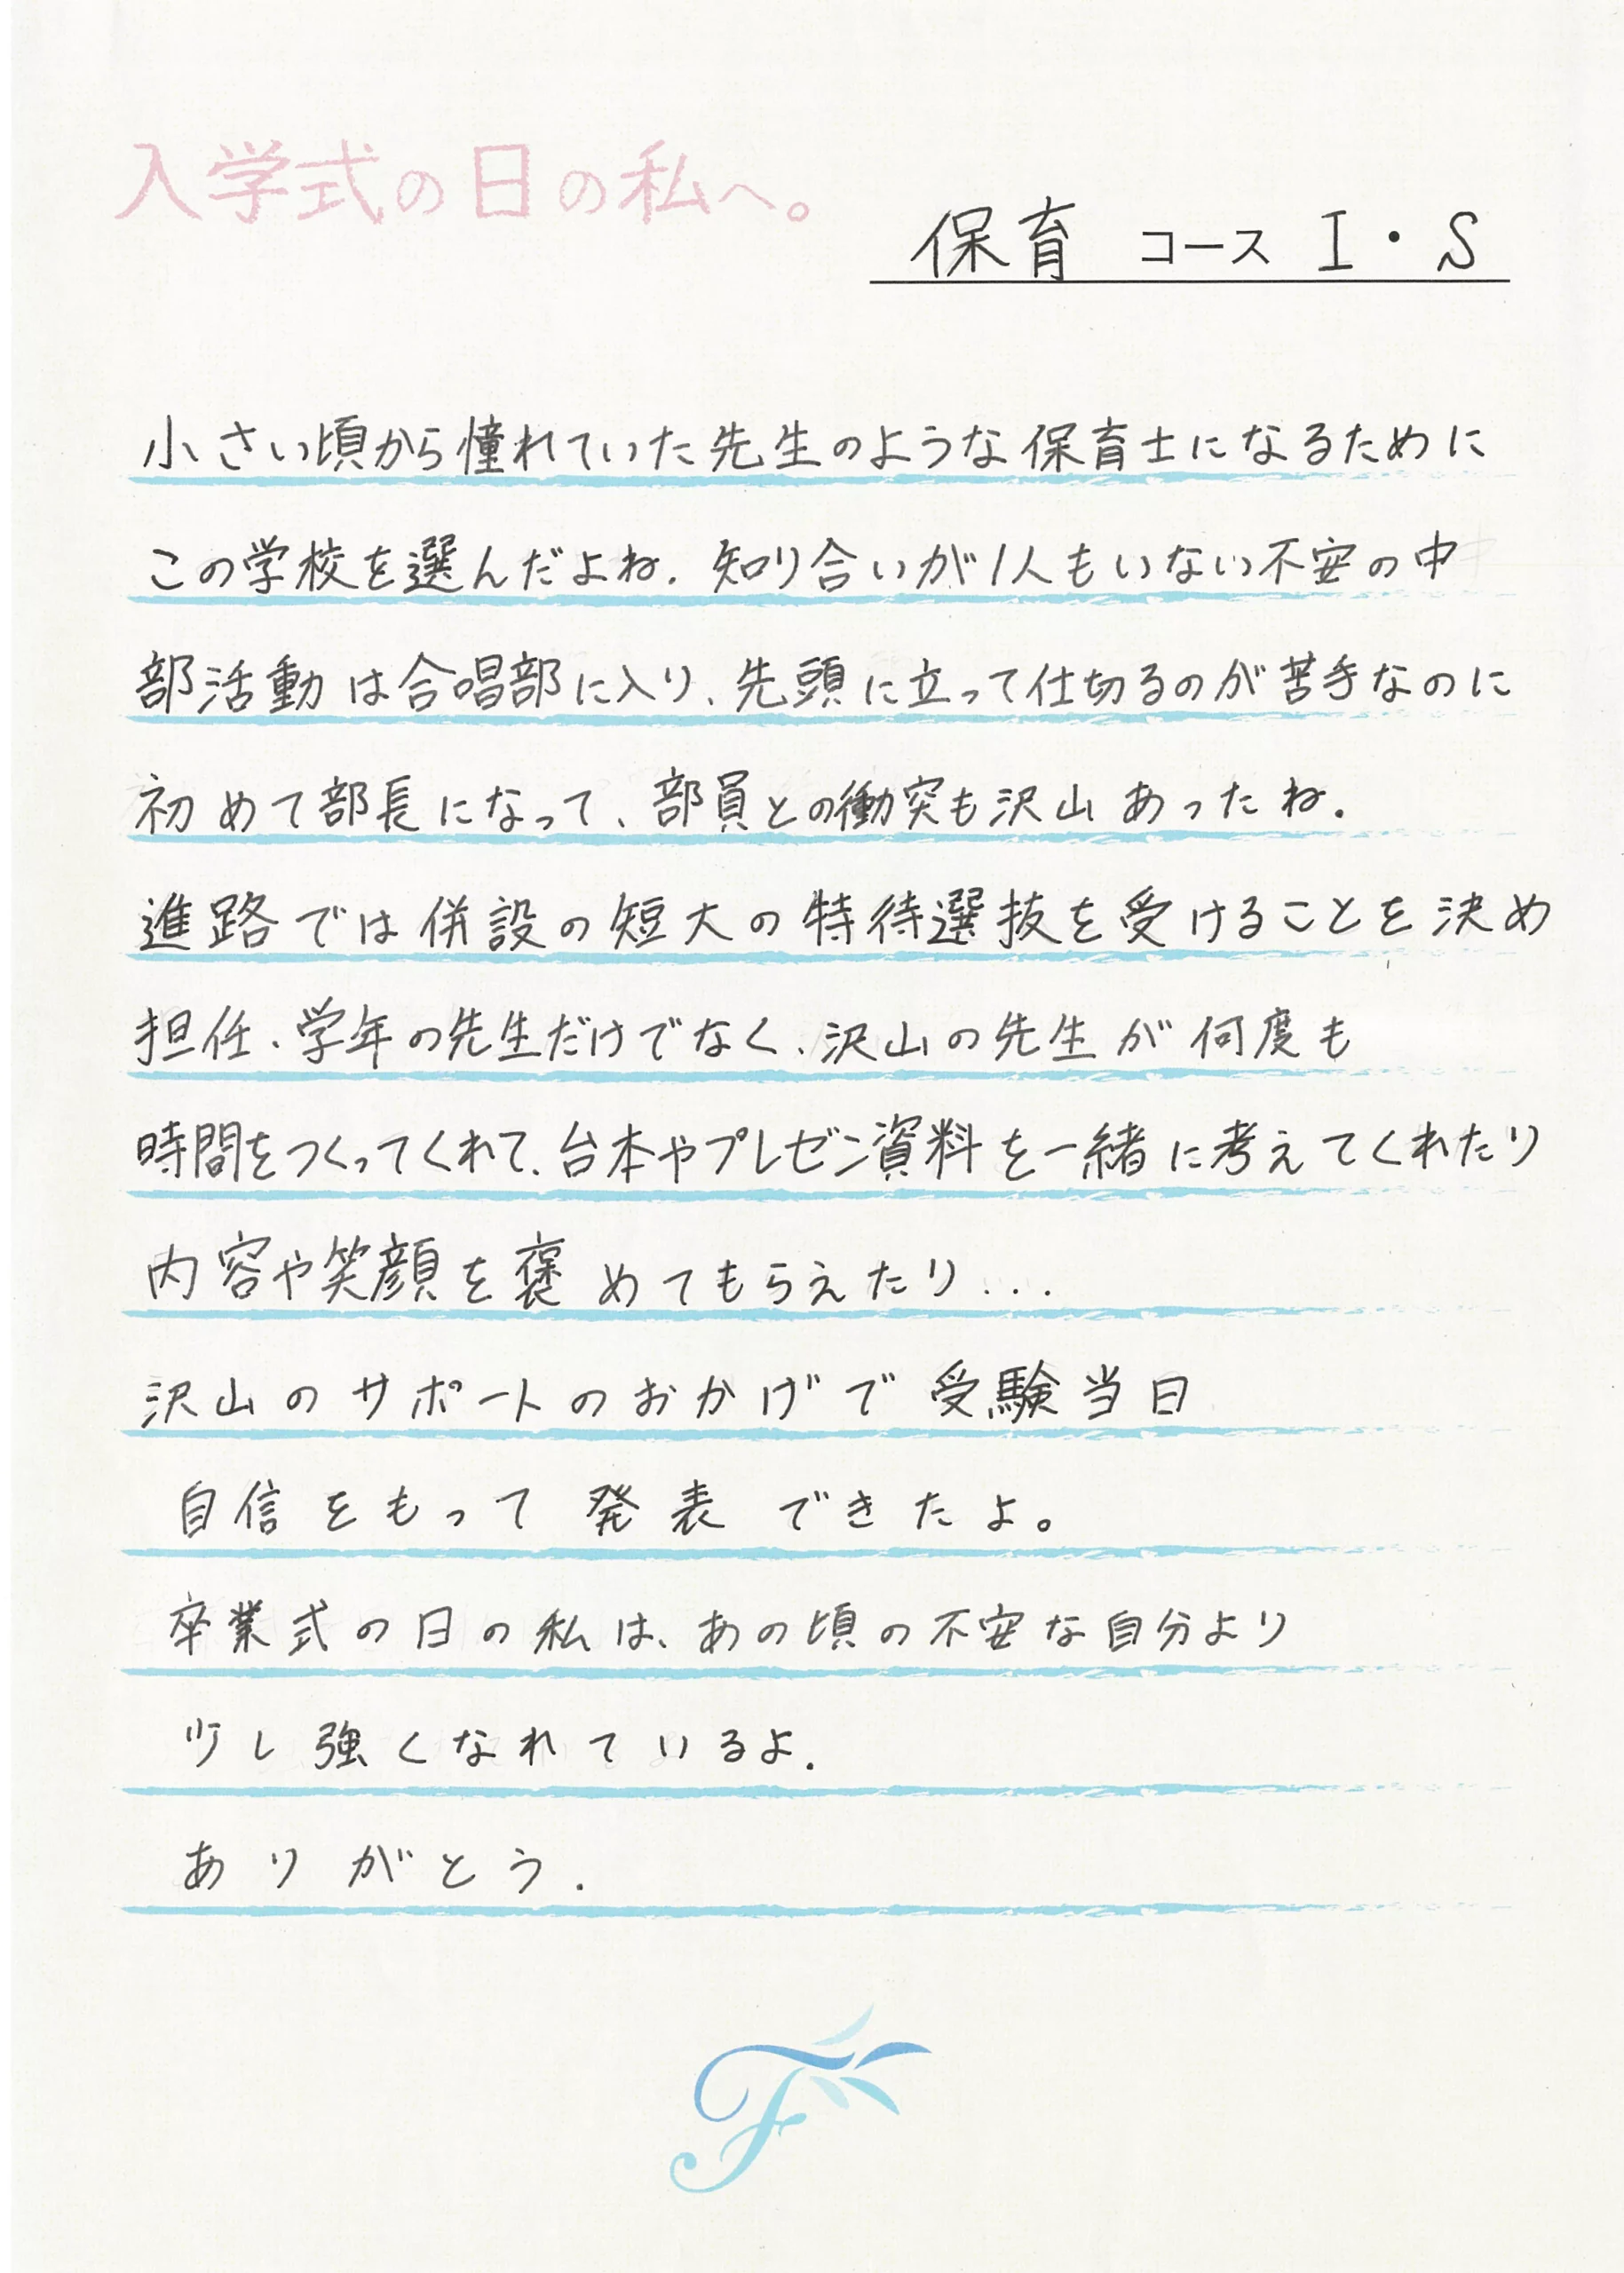 入学式の日の私へ。
保育 コース I・S
小さい頃から憧れていた先生のような保育士になるために
この学校を選んだよね. 知り合いが1人もいない不安の中
部活動は合唱部に入り、先頭に立って仕切るのが苦手なのに
初めて部長になって、部員との衝突も沢山あったね.
進路では併設の短大の特待選抜を受けることを決め
担任、学年の先生だけでなく、沢山の先生が何度も
時間をつくってくれて、台本やプレゼン資料を一緒に考えてくれたり
内容や笑顔を褒めてもらえたり...
沢山のサポートのおかげで受験当日
自信をもって発表できたよ。
卒業式の日の私は、あの頃の不安な自分より
少し強くなれているよ.
ありがとう.
F